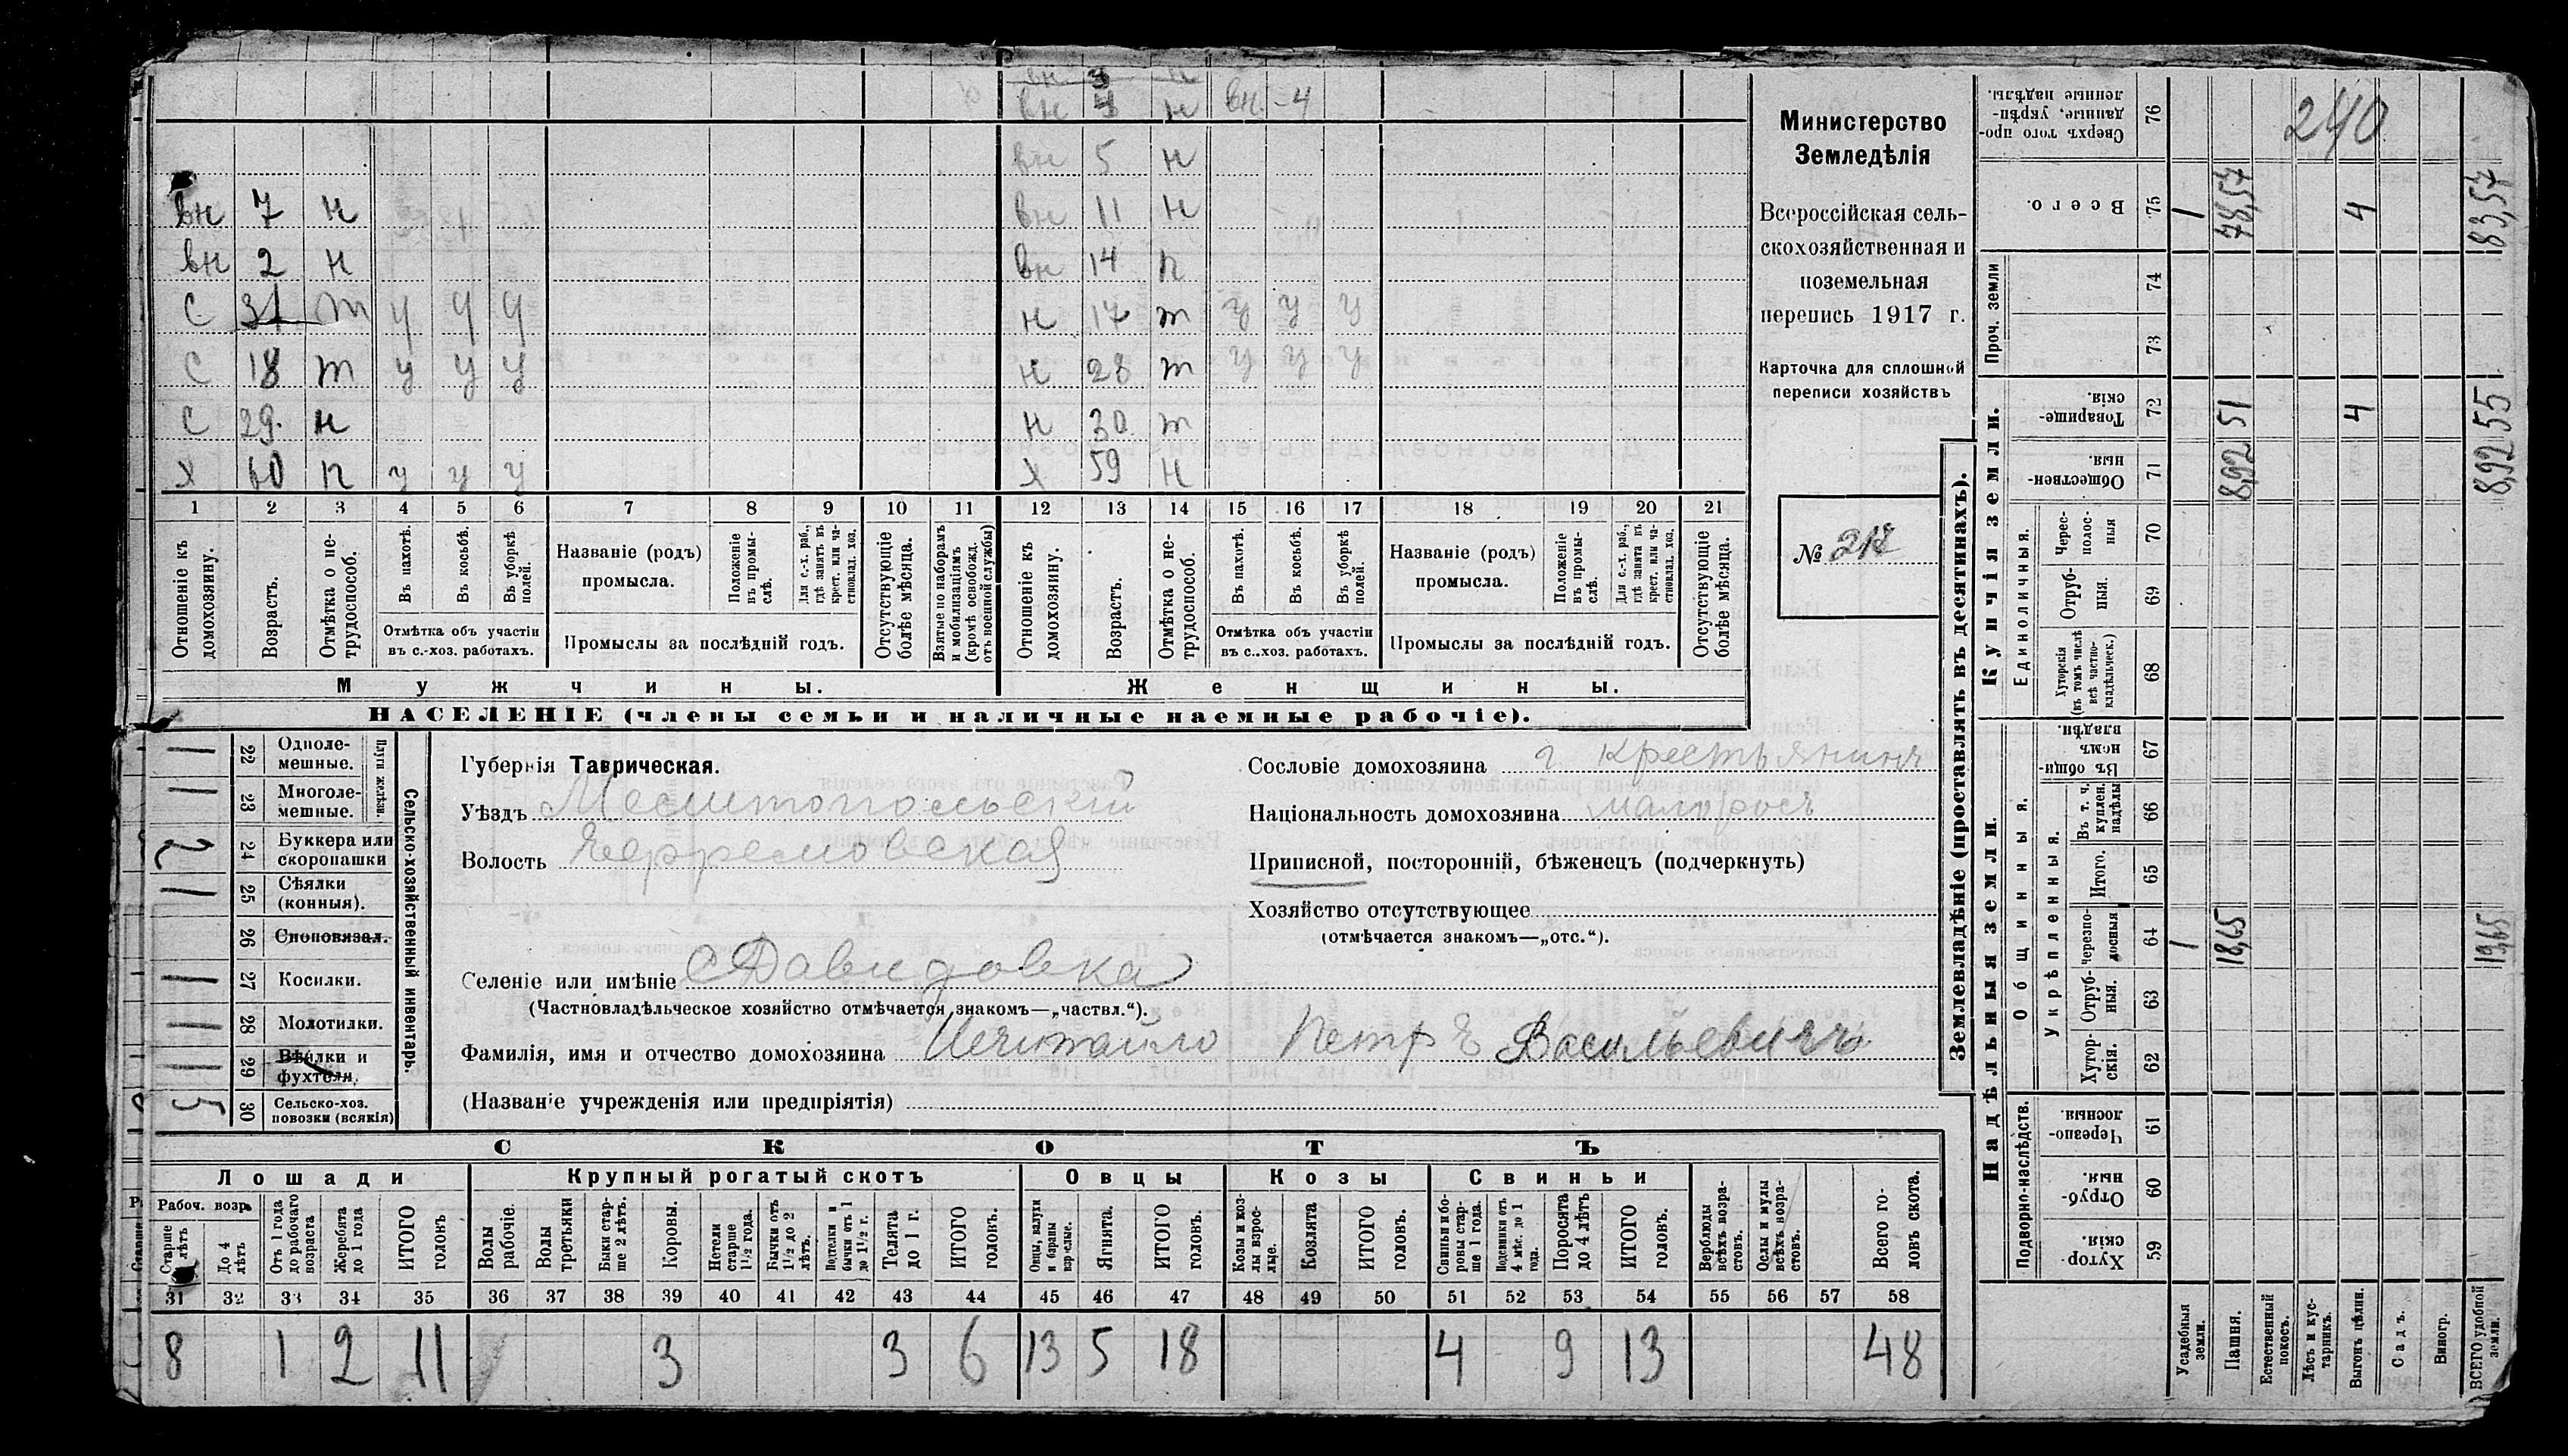 вн 3 н
вн 4 н вн. - 4
вн 5 н
вн 7 н вн 11 н
вн 2 н вн 14 п
С 31 т у у у н 17 т у у у
С 18 т у у у н 28 т у у у
С 29. н н 30 т
Х 60 п у у у Х 59 н
1 2 3 4 5 6 7 8 9 10 11 12 13 14 15 16 17 18 19 20 21
Отношеніе къ домохозяину.
Возрастъ.
Отмѣтка о нетрудоспособ.
Въ пахотѣ.
Въ косьбѣ.
Въ уборкѣ полей.
Отмѣтка объ участіи въ с.-хоз. работахъ.
Названіе (родъ) промысла.
Положеніе въ промыслѣ.
Для с.-х. раб., гдѣ занятъ въ крест. или частновлад. хоз.
Промыслы за послѣдній годъ.
Отсутствующіе болѣе мѣсяца.
Взятые по наборамъ и мобилизаціямъ (кромѣ освобожд. отъ военной службы)
Отношеніе къ домохозяину.
Возрастъ.
Отмѣтка о нетрудоспособ.
Въ пахотѣ.
Въ косьбѣ.
Въ уборкѣ полей.
Отмѣтка объ участіи въ с..хоз. работахъ.
Названіе (родъ) промысла.
Положеніе въ промыслѣ.
Для с.-х. раб., гдѣ занята въ крест. или частновлад. хоз.
Промыслы за послѣдній годъ.
Отсутствующіе болѣе мѣсяца.
Мужчины. Женщины.
НАСЕЛЕНІЕ (члены семьи и наличные наемные рабочіе).
Министерство
Земледѣлія
Всероссійская сель-
скохозяйственная и
поземельная
перепись 1917 г.
Карточка для сплошной
переписи хозяйствъ
№ 218
Сельско-хозяйственный инвентарь.
Плуги желѣзн.
1 22 Однолемешные.
1 23 Многолемешные.
2 24 Буккера или скоропашки
1 25 Сѣялки (конныя).
26 Сноповязал.
1 27 Косилки.
1 28 Молотилки.
1 29 Вѣялки и фухтели.
5 30 Сельско-хоз. повозки (всякія)
Губернія Таврическая.
Уѣздъ Мелитопольскій
Волость Ефремовская
Селеніе или имѣніе с Давидовка
(Частновладѣльческое хозяйство отмѣчается знакомъ—„частвл.“).
Сословіе домохозяина крестьянинъ
Національность домохозяина малоросъ
Приписной, посторонній, бѣженецъ (подчеркнуть)
Хозяйство отсутствующее
(отмѣчается знакомъ—„отс.“).
Фамилія, имя и отчество домохозяина Нечитайло Петръ Васильевичъ
(Названіе учрежденія или предпріятія)
СКОТЪ
Лошади Крупный рогатый скотъ Овцы Козы Свиньи
Рабоч. возр.
Старше лѣтъ
До 4 лѣтъ
Отъ 1 года до рабочаго возраста
Жеребята до 1 года
ИТОГО головъ
Волы рабочіе.
Волы третьяки
Быки старше 2 лѣтъ.
Коровы.
Нетели старше 1½ года.
Бычки отъ 1½ до 2 лѣтъ.
Подтелки и бычки отъ 1 до 1½ г.
Телята до 1 г.
ИТОГО головъ.
Овцы, валухи и бараны взрослые.
Ягнята.
ИТОГО головъ.
Козы и козлы взрослые.
Козлята
ИТОГО головъ.
Свиньи и боровы старше 1 года.
Подсвинки отъ 4 мѣс. до 1 года.
Поросята до 4 лѣтъ
ИТОГО головъ.
Верблюды всѣхъ возрастовъ.
Ослы и мулы всѣхъ возрастовъ.
Всего головъ скота.
31 32 33 34 35 36 37 38 39 40 41 42 43 44 45 46 47 48 49 50 51 52 53 54 55 56 57 58
8 1 2 11 3 3 6 13 5 18 4 9 13 48
Землевладѣніе (проставлять въ десятинахъ).
Надѣльныя земли.
Купчія земли.
Подворно-наслѣдств.
Общинныя.
Укрѣпленныя.
Единоличныя.
Проч. земли
Сверхъ того проданные, укрѣпленные надѣлы. 76 240
Всего. 75 1 78,57 4 83,57
74
73
Товарищескія. 72 51 4 55
Общественныя. 71 8,92 8,92
Чересполосныя 70
Отрубныя. 69
Хуторскія (въ томъ числѣ всѣ частновладѣльческ.) 68
Въ общинномъ владѣн. 67
Въ т. ч. куплен. надѣлы 66
Итого. 65
Черезполосныя 64 1 18,65 19,65
Отрубныя. 63
Хуторскія. 62
Черезполосныя. 61
Отрубныя. 60
Хуторскія. 59
Усадебныя земли.
Пашня.
Естественный покосъ.
Лѣсъ и кустарникъ.
Выгонъ цѣлин.
Садъ.
Виногр.
ВСЕГО удобной земли.